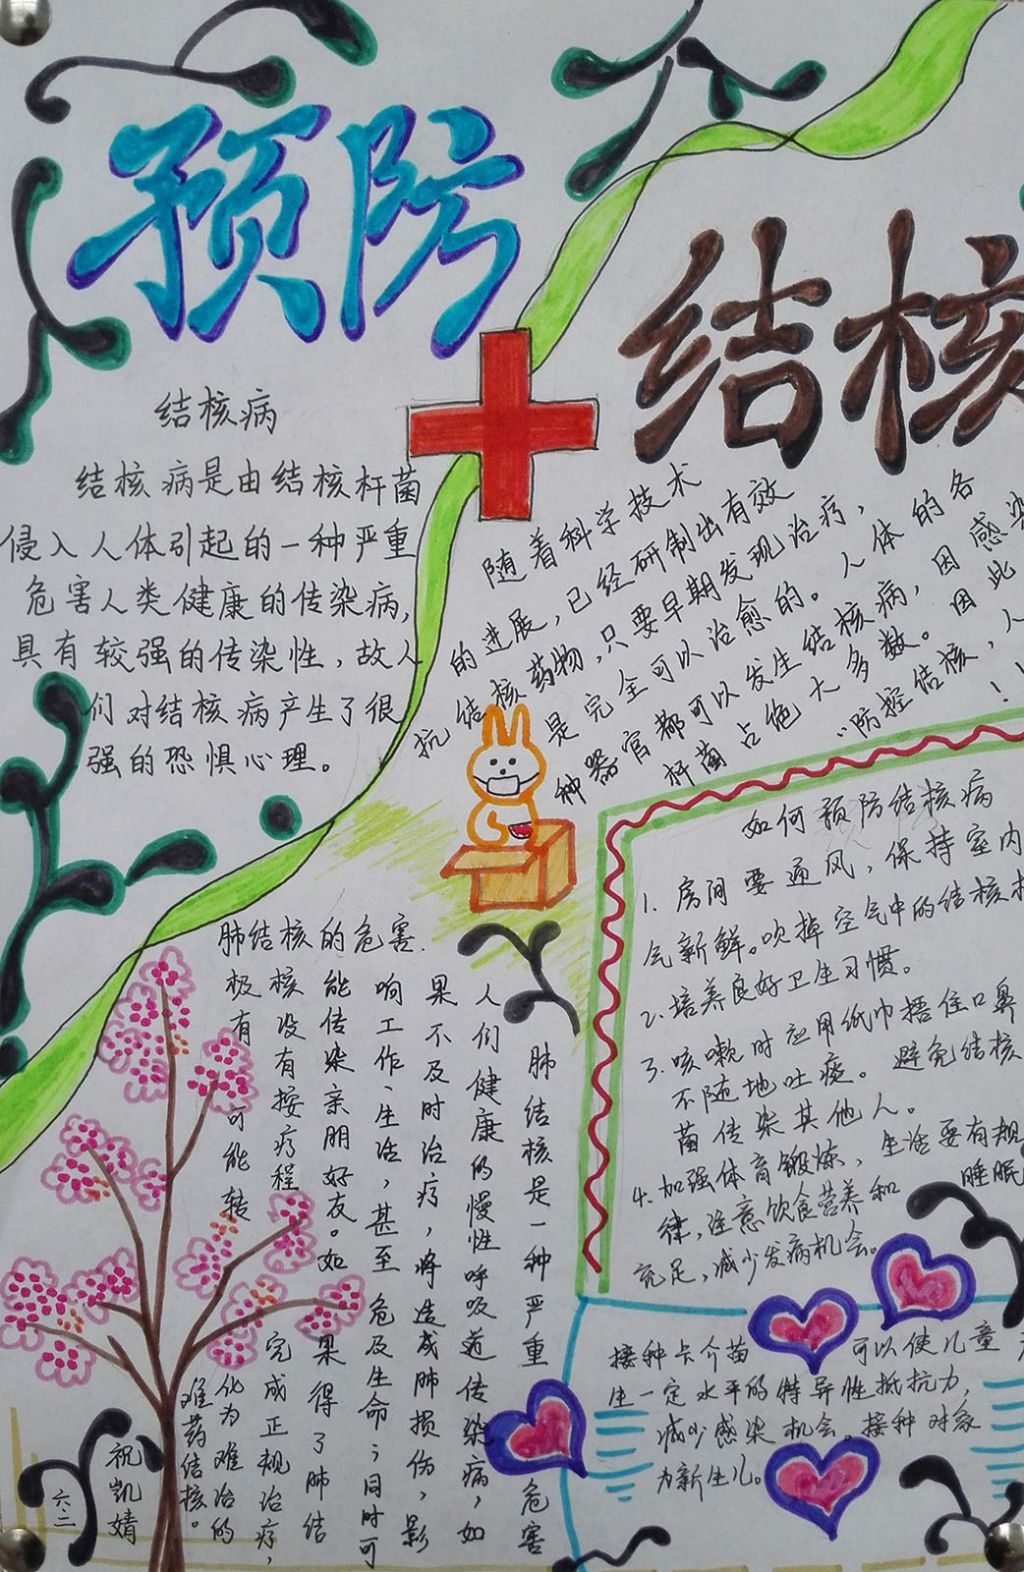 预防
结核
结核病
结核病是由结核杆菌
侵入人体引起的一种严重
危害人类健康的传染病,
具有较强的传染性,故人
们对结核病产生了很
强的恐惧心理。
随着科学技术
的进展,已经研制出有效
抗结核药物,只要早期发现治疗,
是完全可以治愈的。人体的各
种器官都可以发生结核病,因感染
杆菌占绝大多数。因此
“防控结核,人
!
如何预防结核病
1.房间要通风,保持室内
气新鲜。吹掉空气中的结核
2.培养良好卫生习惯。
3.咳嗽时应用纸巾捂住口鼻
不随地吐痰。避免结核
菌传染其他人。
4.加强体育锻炼,生活要有规
律,注意饮食营养和睡眠
充足,减少发病机会。
肺结核的危害.
肺结核是一种严重危害
人们健康的慢性呼吸道传染病,如
果不及时治疗,将造成肺损伤,影
响工作、生活,甚至危及生命;同时可
能传染亲朋好友。如果得了肺结
核没有按疗程完成正规治疗,
极有可能转化为难治的
难药结核。
接种卡介苗可以使儿童
生一定水平的特异性抵抗力,
减少感染机会。接种对象
为新生儿。
祝凯婧
六.二